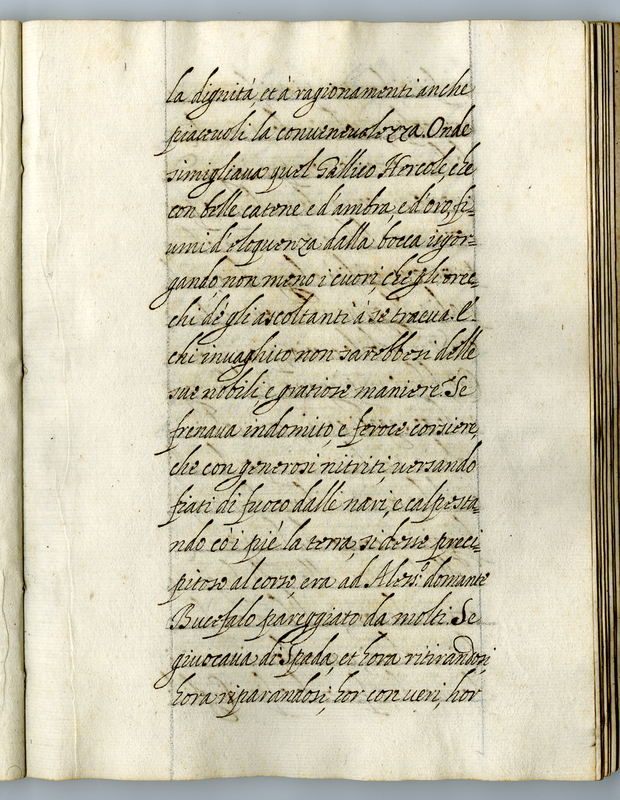 la dignità, et à ragionamenti anche
piacevoli la convenevolezza. Onde
simigliava quel Gallico Hercole, che
con belle catene e d'ambra, e d'oro, fi=
umi d'eloquenza dalla bocca isgor=
gando, non meno i cuori, che gli orec=
chi de gli ascoltanti à se traeva. E
chi invaghito non sarebbesi delle
sue nobili, e gratiose maniere? Se
frenava indomito, e feroce corsiere,
che con generosi nitriti, versando
fiati di fuoco dalle nari, e calpesta=
ndo co'i piè la terra, si desse preci=
pitoso al corso, era ad Aless.º domante
Bucefalo pareggiato da molti. Se
giuocava di Spada, et hora ritirandosi,
hora riparandosi, hor con veri, hor